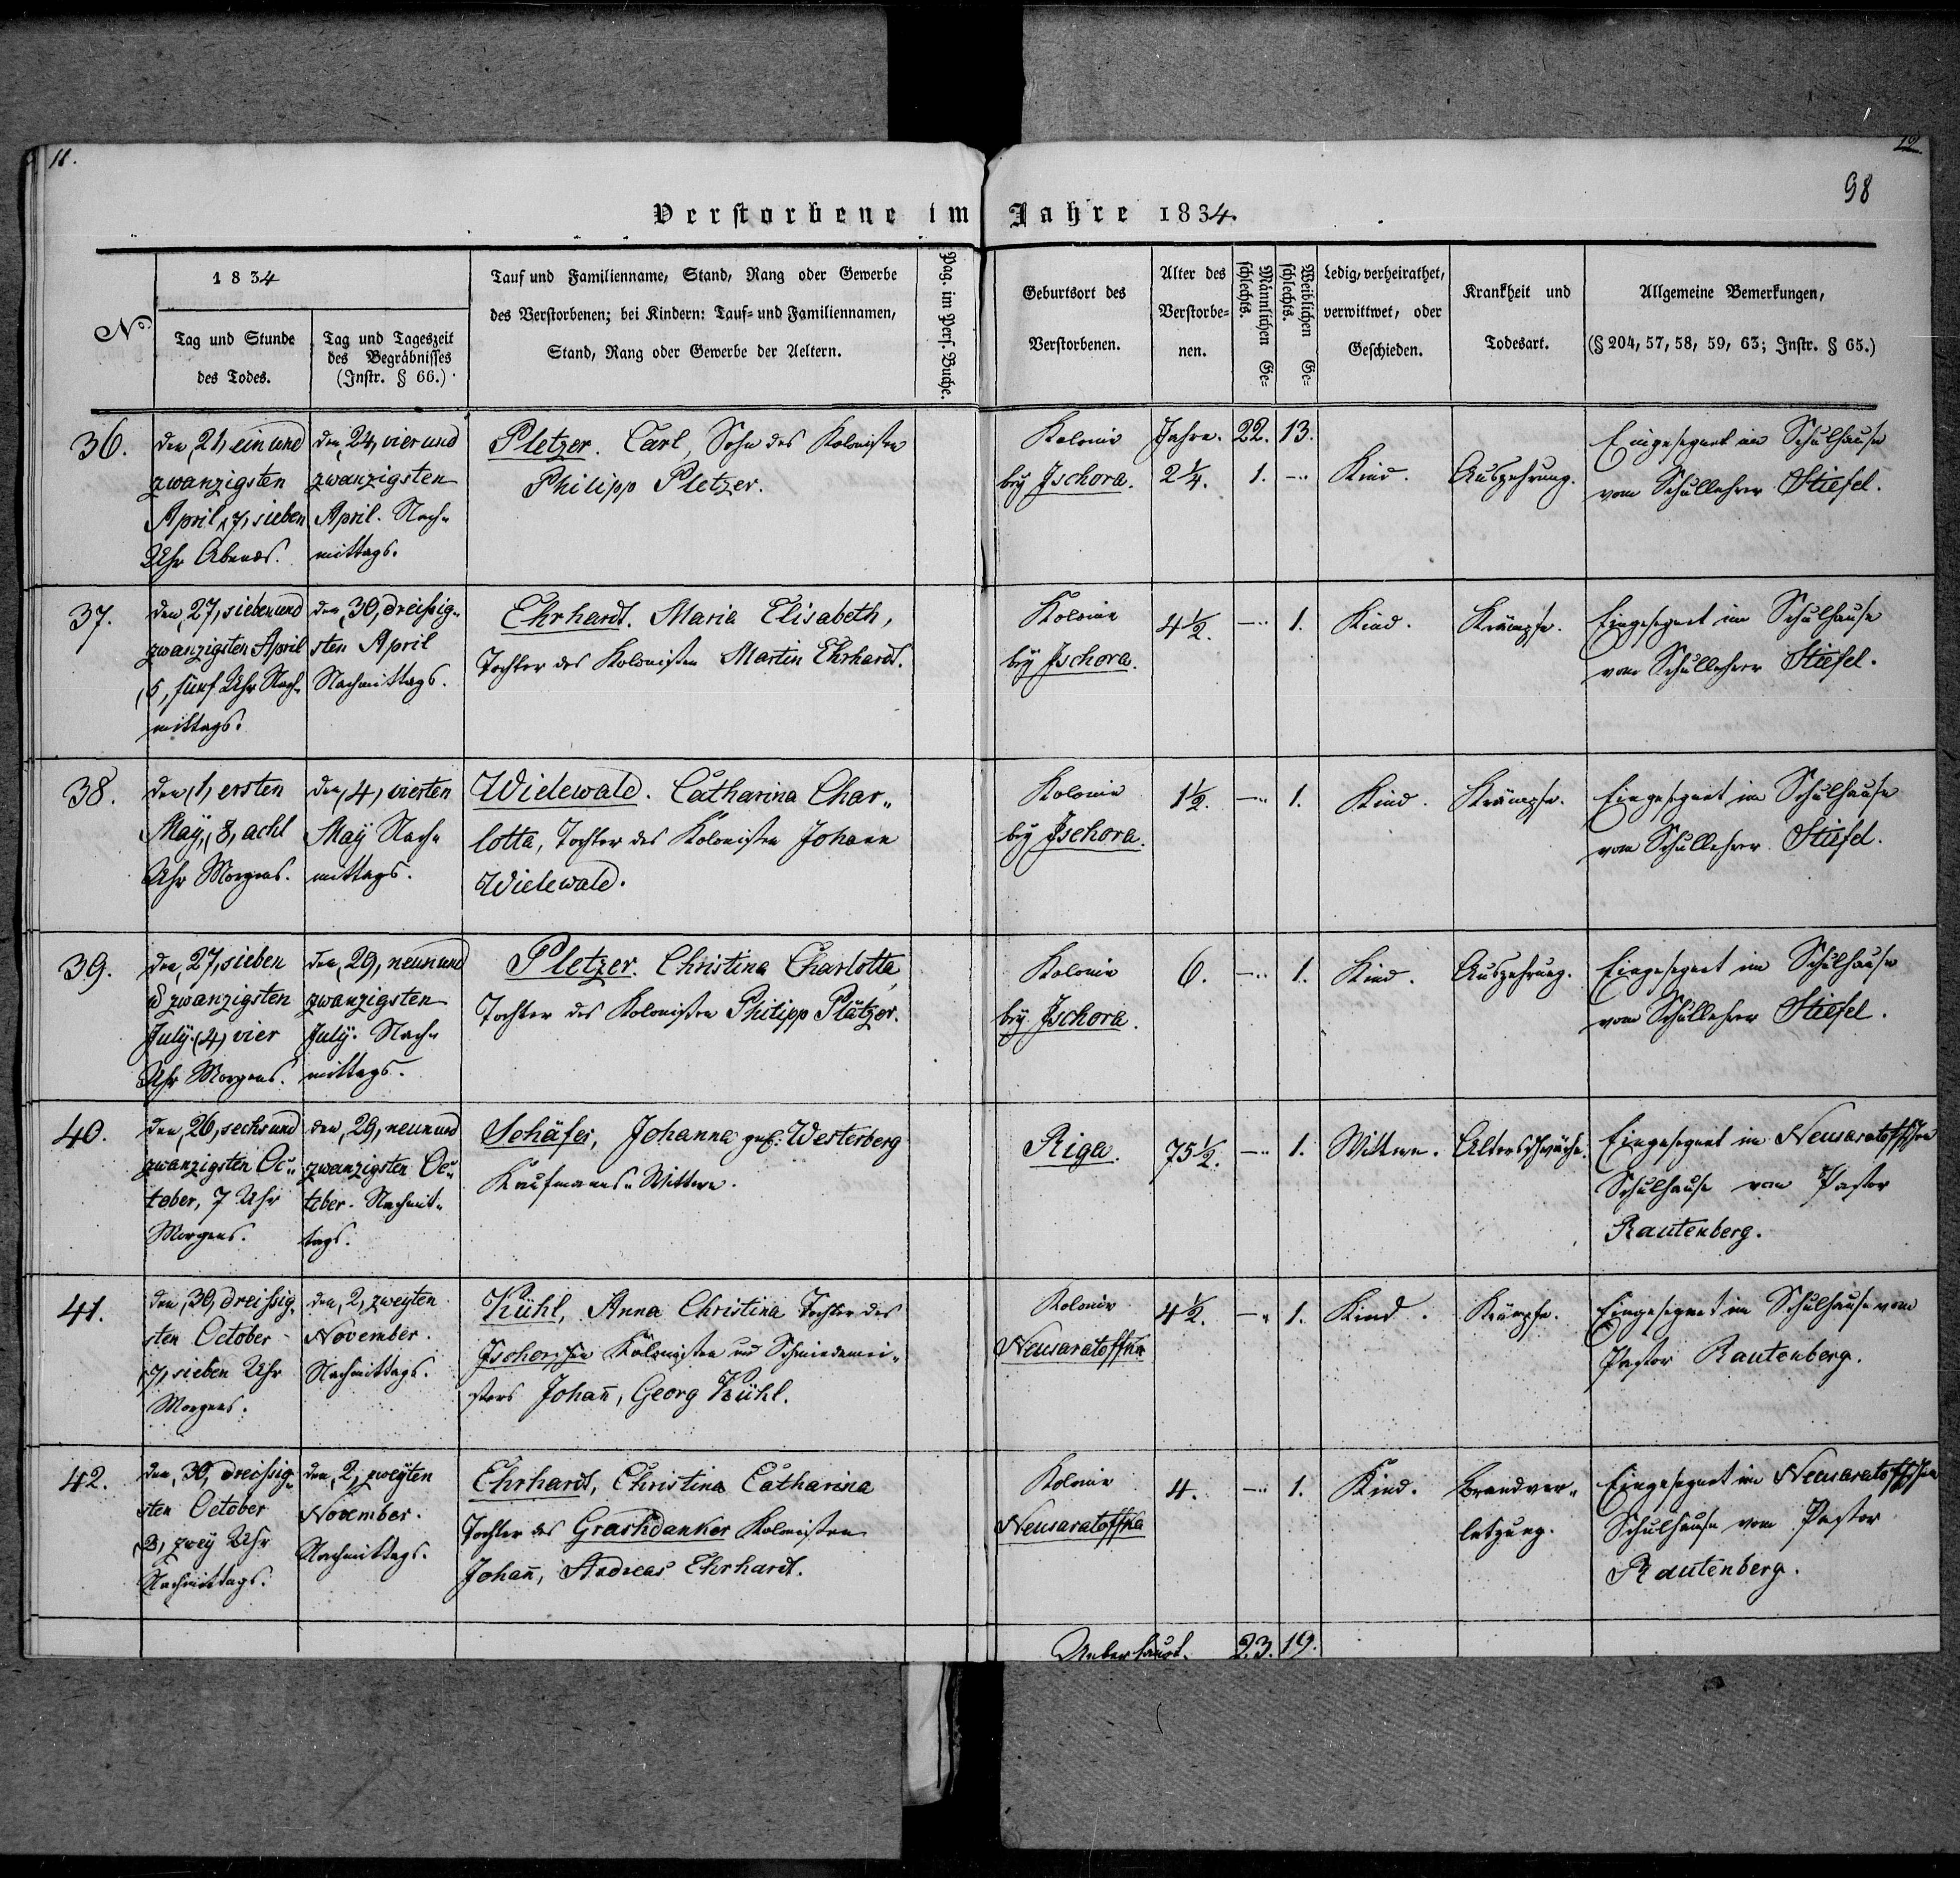 11.
12.
98
Verstorbene im Jahre 1834.
No.
1834
Tag und Stunde
des Todes.
Tag und Tageszeit
des Begräbnisses
(Instr. § 66.)
Tauf und Familienname, Stand, Rang oder Gewerbe
des Verstorbenen; bei Kindern: Tauf- und Familiennamen,
Stand, Rang oder Gewerbe der Aeltern.
Pag. im Pers. Buche.
Geburtsort des
Verstorbenen.
Alter des
Verstorbe-
nen.
Männlichen Ge-
schlechts.
Weiblichen Ge-
schlechts.
Ledig, verheirathet,
verwittwet, oder
Geschieden.
Krankheit und
Todesart.
Allgemeine Bemerkungen,
(§ 204, 57, 58, 59, 63; Instr. § 65.)
36.
den, 21, ein und
zwanzigsten
April, 7, sieben
Uhr Abends.
den, 24, vier und
zwanzigsten
April. Nach-
mittags.
Pletzer. Carl, Sohn des Kolonisten
Philipp Pletzer.
Kolonie
bey Ischora.
Jahre.
2 1/4.
22.
1.
13.
—
Kind.
Auszehrung.
Eingesegnet im Schulhause
vom Schullehrer Stiefel.
37.
den, 27, sieben und
zwanzigsten April
(5, fünf Uhr Nach-
mittags.
den, 30, dreißig-
sten April
Nachmittags.
Ehrhardt. Maria Elisabeth,
Tochter des Kolonisten Martin Ehrhardt.
Kolonie
bey Ischora.
4 1/2.
—
1.
Kind.
Krämpfe.
Eingesegnet im Schulhause
vom Schullehrer Stiefel.
38.
den, 1, ersten
May, (8, acht
Uhr Morgens.
den, 4, vierten
May Nach-
mittags.
Widewald. Catharina Char-
lotta, Tochter des Kolonisten Johann
Widewald.
Kolonie
bey Ischora.
1 1/2.
—
1.
Kind.
Krämpfe.
Eingesegnet im Schulhause
vom Schullehrer Stiefel.
39.
den, 27, sieben
u zwanzigsten
July. (4) vier
Uhr Morgens.
den, 29, neun und
zwanzigsten
July. Nach-
mittags.
Pletzer. Christina Charlotta,
Tochter des Kolonisten Philipp Plätzer.
Kolonie
bey Ischora.
6.
—
1.
Kind.
Auszehrung.
Eingesegnet im Schulhause
vom Schullehrer Stiefel.
40.
den, 26, sechs und
zwanzigsten Oc-
tober, 7 Uhr
Morgens.
den, 29, neun und
zwanzigsten Oc-
tober. Nachmit-
tags.
Schäfer, Johanna geb: Westerberg
Kaufmanns-Wittwe.
Riga.
75 1/2.
—
1.
Wittwe.
Altersschwäche.
Eingesegnet im Neusaratoffschen
Schulhause vom Pastor
Rautenberg.
41.
den, 30, dreißig-
sten October
(7, sieben Uhr
Morgens.
den, 2, zweyten
November.
Nachmittags.
Kühl, Anna Christina Tochter des
Ischorischen Kolonisten und Schmiedemei-
sters Johañ, Georg Kühl.
Kolonie
Neusaratoffka
4 1/2.
—
1.
Kind.
Krämpfe.
Eingesegnet im Schulhause vom
Pastor Rautenberg.
42.
den, 30, dreißig-
sten October
(2, zwey Uhr
Nachmittags.
den, 2, zweyten
November.
Nachmittags.
Ehrhardt, Christina Catharina
Tochter des Grashdanker Kolonisten
Johañ, Andreas Ehrhardt.
Kolonie
Neusaratoffka
4.
—
1.
Kind.
Brandver-
letzung.
Eingesegnet im Neusaratoffschen
Schulhause vom Pastor
Rautenberg.
Ueberhaupt. 23. 19.